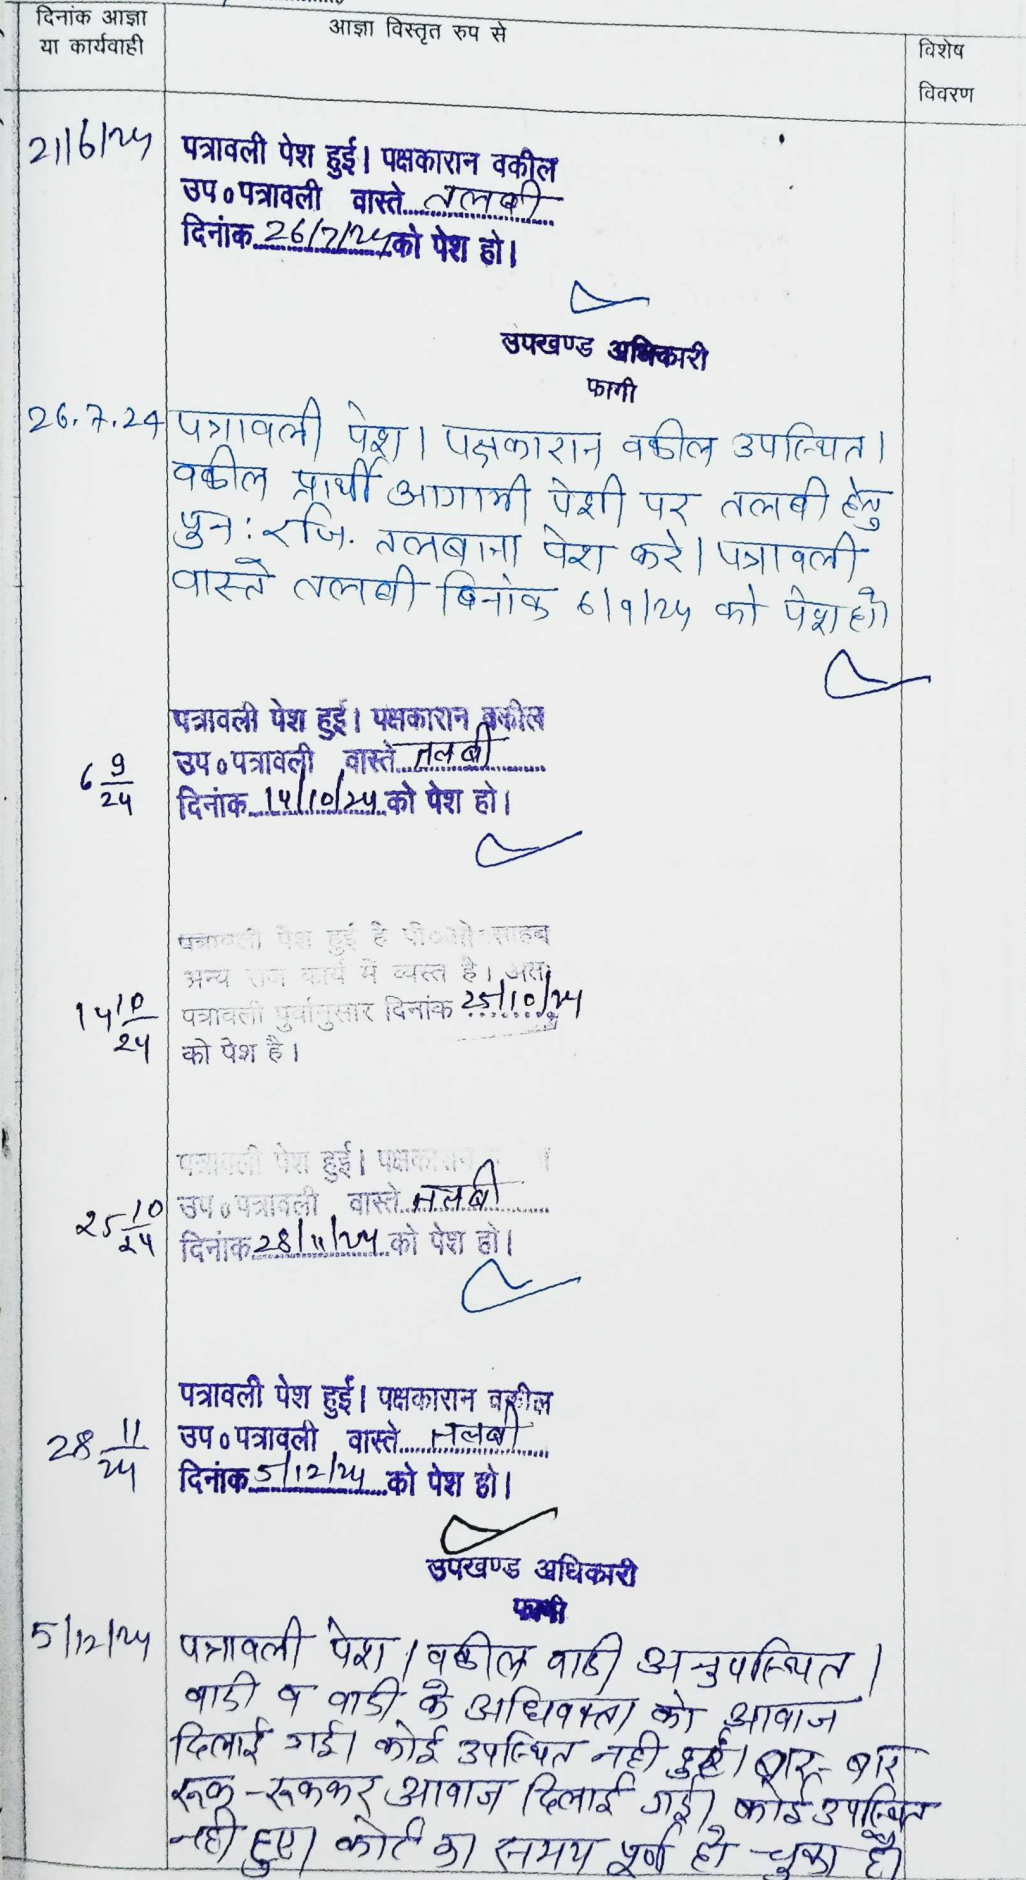 दिनांक आज्ञा
या कार्यवाही
आज्ञा विस्तृत रुप से
विशेष
विवरण
21/6/24
पत्रावली पेश हुई। पक्षकारान वकील
उप० पत्रावली वास्ते तलबी
दिनांक 26/7/24 को पेश हो।
उपखण्ड अधिकारी
फागी
26.7.24
पत्रावली पेश। पक्षकारान वकील उपस्थित।
वकील प्रार्थी आगामी पेशी पर तलबी हेतु
पुन: रजि. तलबाना पेश करे। पत्रावली
वास्ते तलबी दिनांक 6/9/24 को पेश हो
6 9/24
पत्रावली पेश हुई। पक्षकारान वकील
उप० पत्रावली वास्ते तलबी
दिनांक 14/10/24 को पेश हो।
14 10/24
पत्रावली पेश हुई है पी०ओ० साहब
अन्य राज कार्य में व्यस्त है। अतः
पत्रावली पुर्वानुसार दिनांक 25/10/24
को पेश है।
25 10/24
पत्रावली पेश हुई। पक्षकारान
उप० पत्रावली वास्ते तलबी
दिनांक 28/11/24 को पेश हो।
28 11/24
पत्रावली पेश हुई। पक्षकारान वकील
उप० पत्रावली वास्ते तलबी
दिनांक 5/12/24 को पेश हो।
उपखण्ड अधिकारी
फागी
5/12/24
पत्रावली पेश। वकील वादी अनुपस्थित।
वादी व वादी के अधिवक्ता को आवाज
दिलाई गई। कोई उपस्थित नही हुई। बार-बार
रूक-रूककर आवाज दिलाई गई। कोई उपस्थित
नही हुए। कोर्ट का समय पूर्ण हो चुका है।